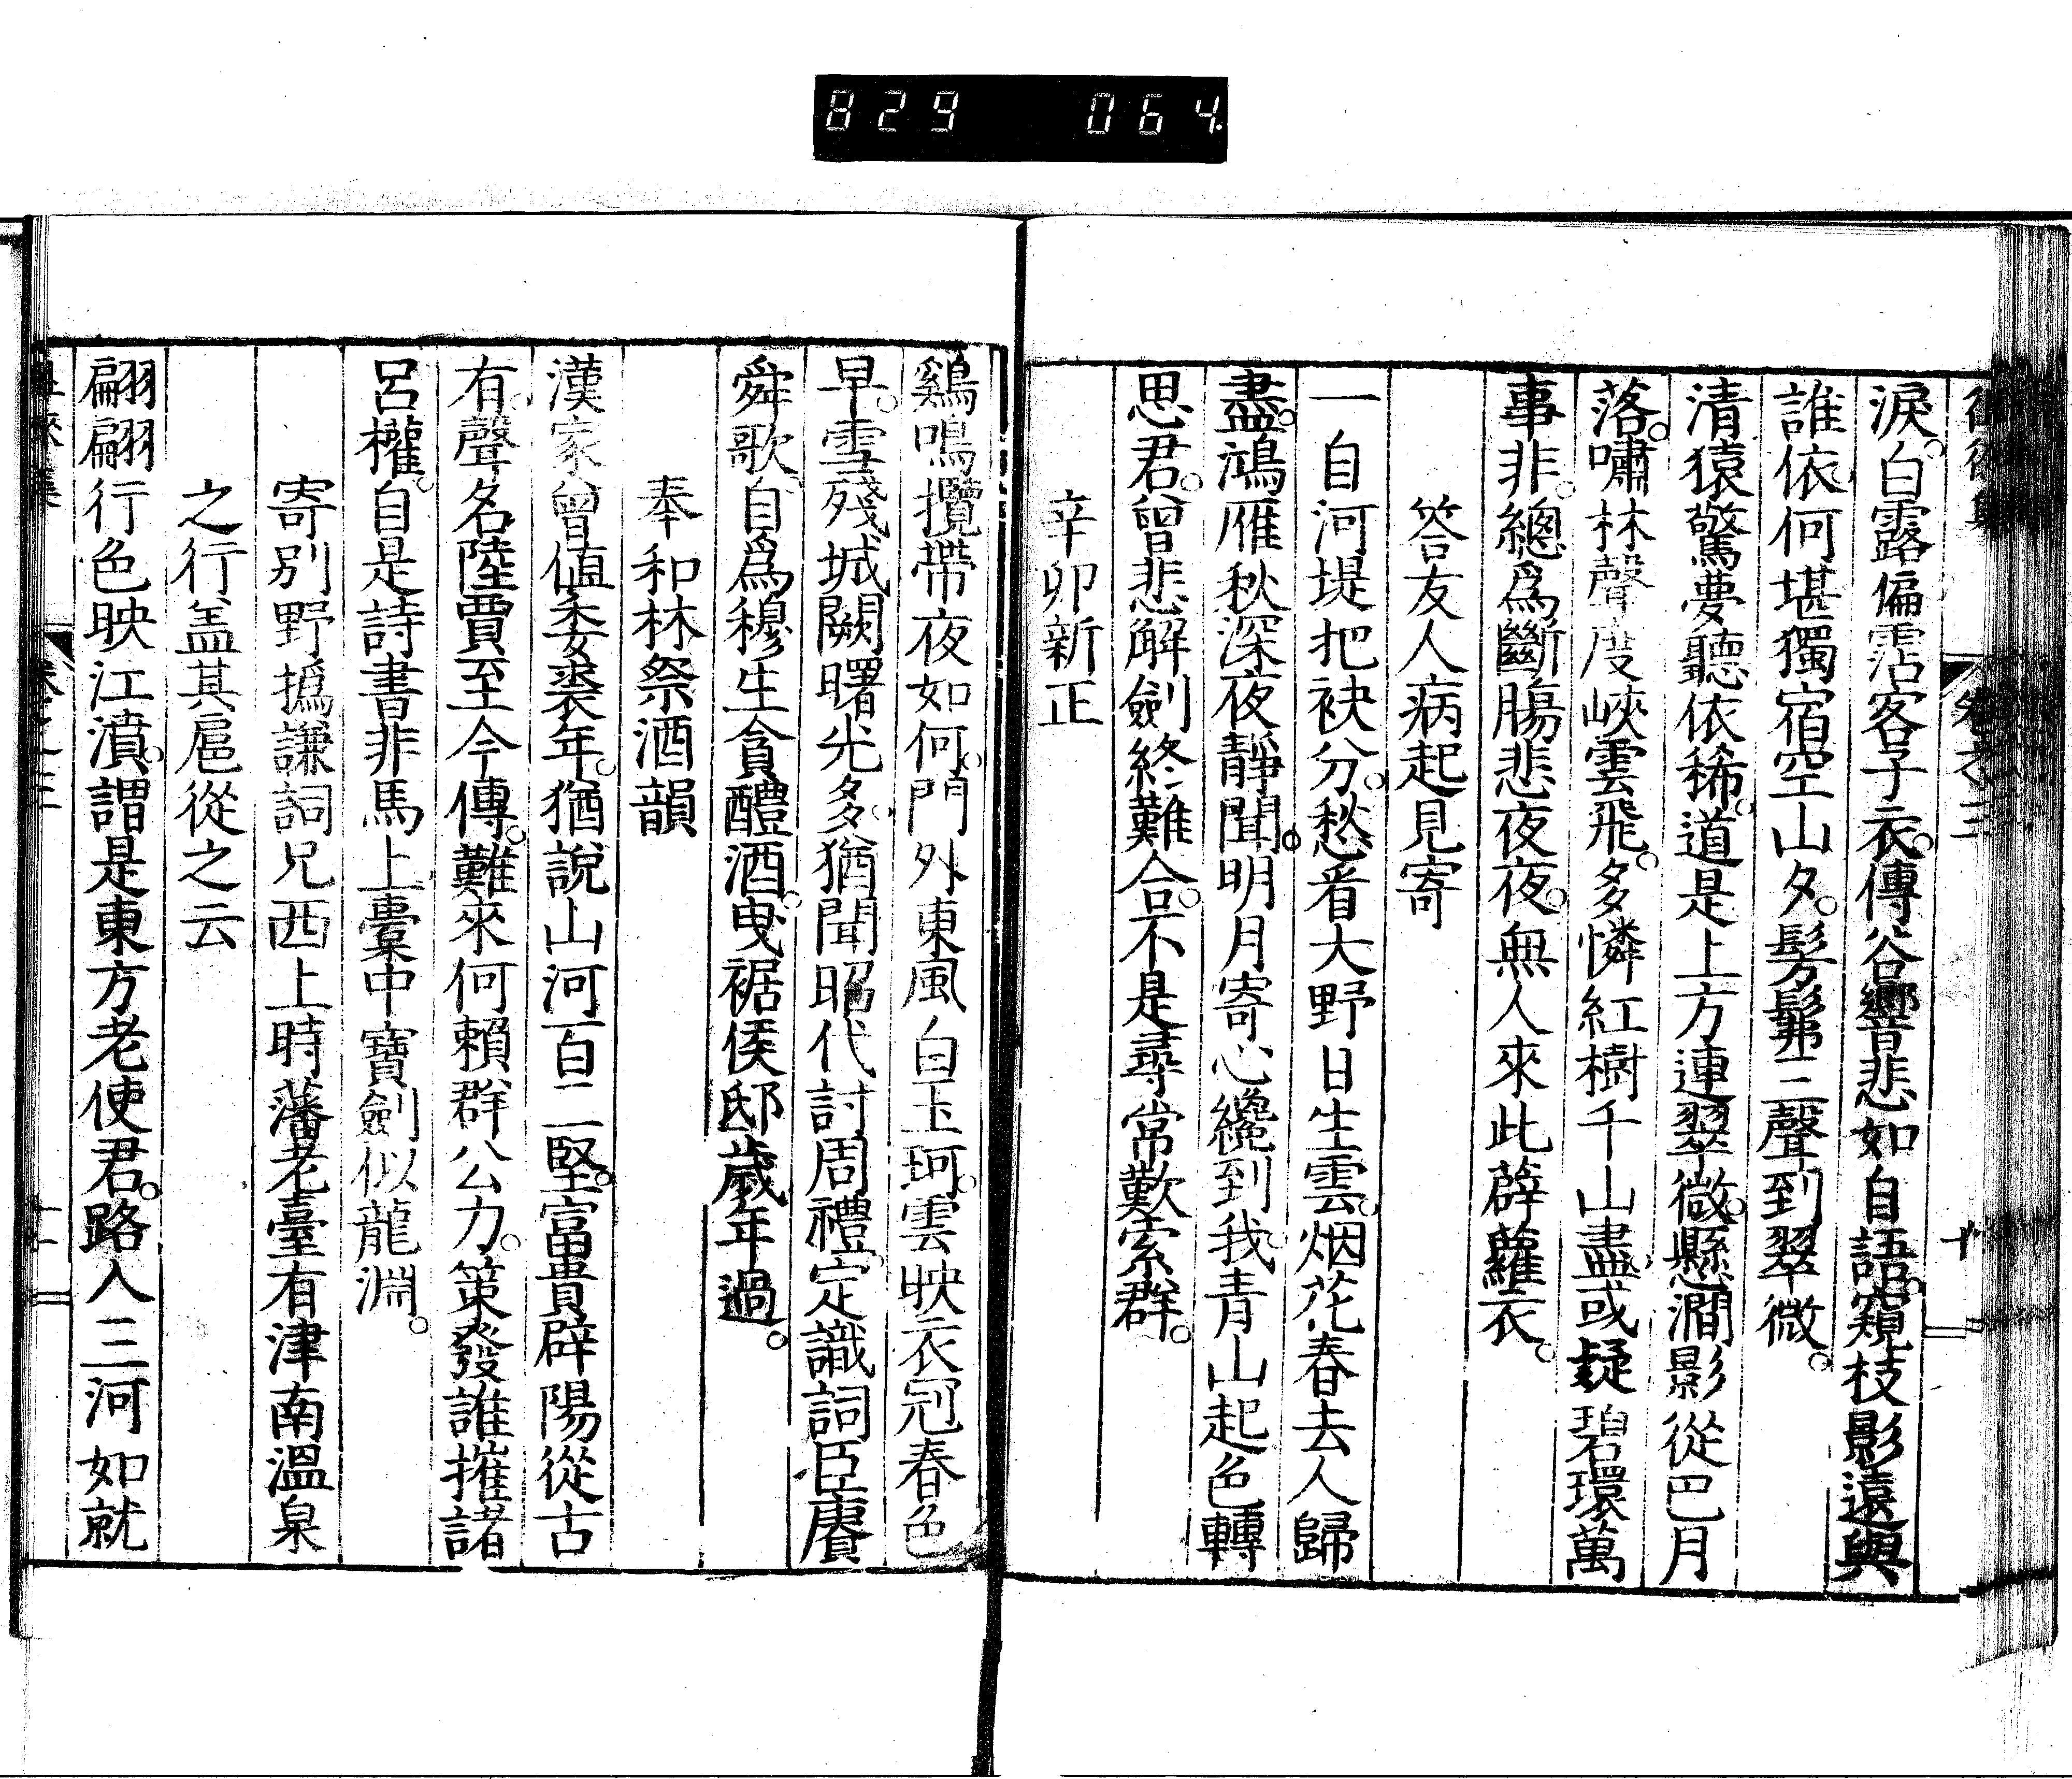 829 064
淚。白露偏霑客子衣。傳谷響悲如自語。窺枝影遠與
誰依。何堪獨宿空山夕。髣髴三聲到翠微。
清猿驚夢聽依稀。道是上方連翠微。懸澗影從巴月
落。嘯林聲度峽雲飛。多憐紅樹千山盡。或疑碧環萬
事非。總爲斷腸悲夜夜。無人來此薜蘿衣。
答友人病起見寄
一自河堤把袂分。愁看大野日生雲。烟花春去人歸
盡。鴻雁秋深夜靜聞。明月寄心纔到我。青山起色轉
思君。曾悲解劍終難合。不是尋常歎索群。
辛卯新正
鷄鳴攬帶夜如何。門外東風白玉珂。雲映衣冠春色
早。雪殘城闕曙光多。猶聞昭代討周禮。定識詞臣賡
舜歌。自爲穆生貪醴酒。曳裾侯邸歲年過。
奉和林祭酒韻
漢家曾値委裘年。猶說山河百二堅。富貴辟陽從古
有。聲名陸賈至今傳。難來何賴群公力。策發誰摧諸
呂權。自是詩書非馬上。橐中寶劍似龍淵。
寄別野撝謙詞兄西上時藩老臺有津南溫泉
之行盖其扈從之云
翩翩行色映江濆。謂是東方老使君。路入三河如就